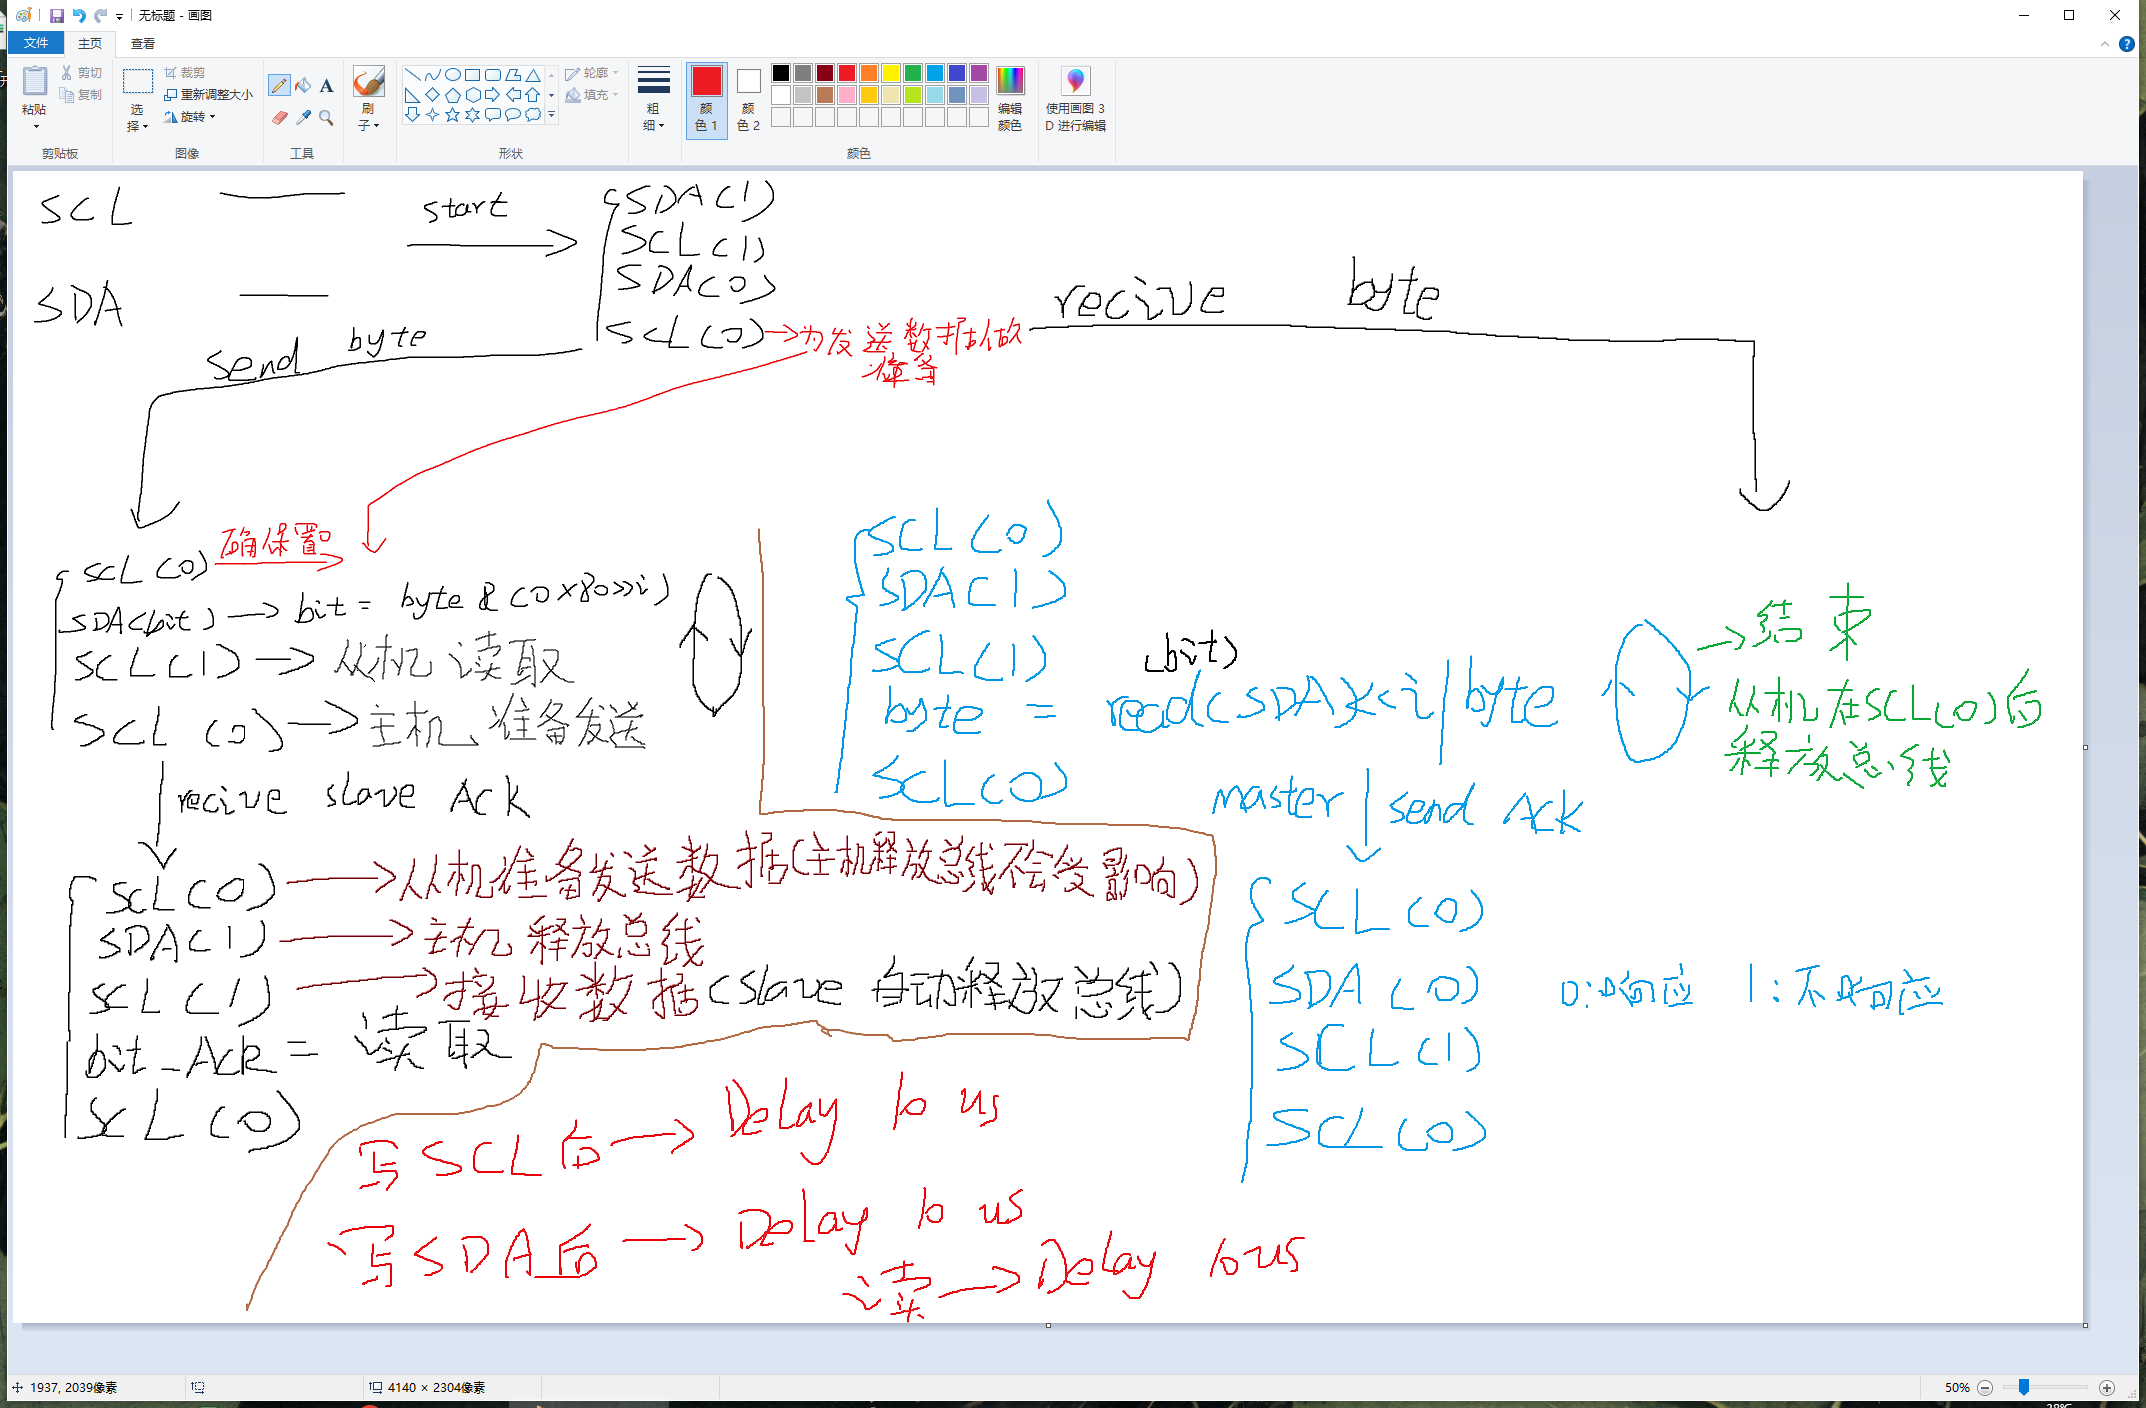 无标题 - 画图
文件 主页 查看
粘贴
剪切
复制
剪贴板
选择
裁剪
重新调整大小
旋转
图像
工具
刷子
形状
轮廓
填充
粗细
颜色 1
颜色 2
编辑颜色
颜色
使用画图 3D 进行编辑
SCL
start
SDA(1)
SCL(1)
SDA(0)
SCL(0)→为发送数据做
准备
SDA
send byte
recive byte
SCL(0) 确保置0
SDA(bit) → bit = byte & (0x80>>i)
SCL(1) → 从机读取
SCL(0) → 主机准备发送
recive slave Ack
SCL(0) → 从机准备发送数据(主机释放总线不会受影响)
SDA(1) → 主机释放总线
SCL(1) → 接收数据(slave 自动释放总线)
bit_Ack = 读取
SCL(0)
SCL(0)
SDA(1)
SCL(1)
(bit)
byte = read(SDA)<<i | byte
SCL(0)
→结束
从机在SCL(0)后
释放总线
master send Ack
SCL(0)
SDA(0) 0:响应 1:不响应
SCL(1)
SCL(0)
写SCL后 → Delay 10 us
写SDA后 → Delay 10 us
读 → Delay 10us
1937, 2039像素
4140 × 2304像素
50%